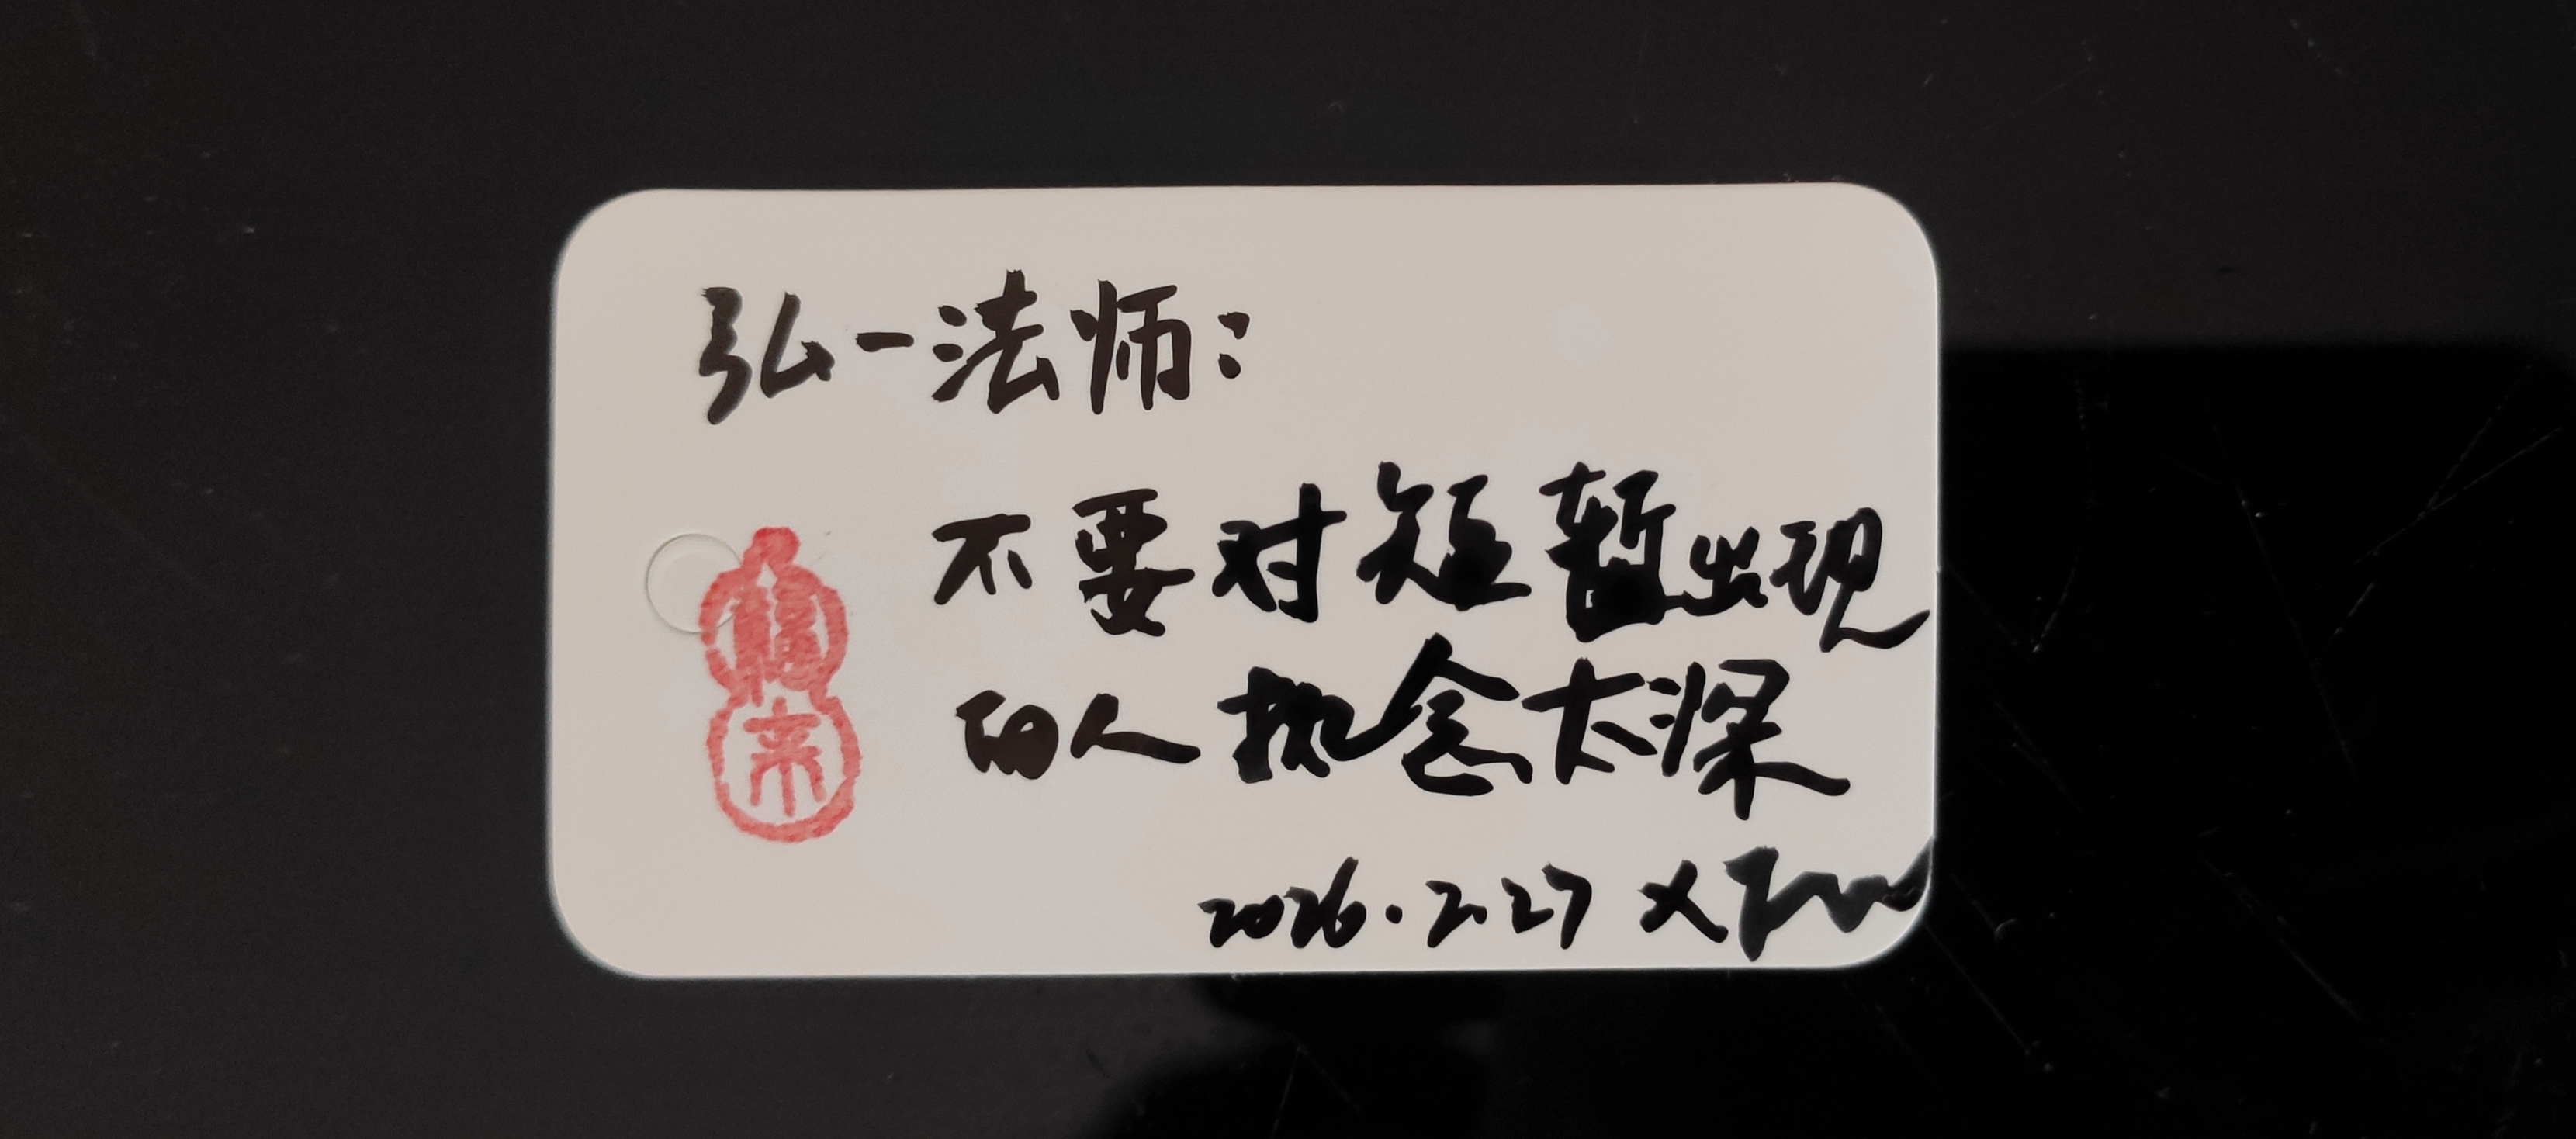 弘一法师：
不要对短暂出现
的人执念太深
2026.2.27
福
来